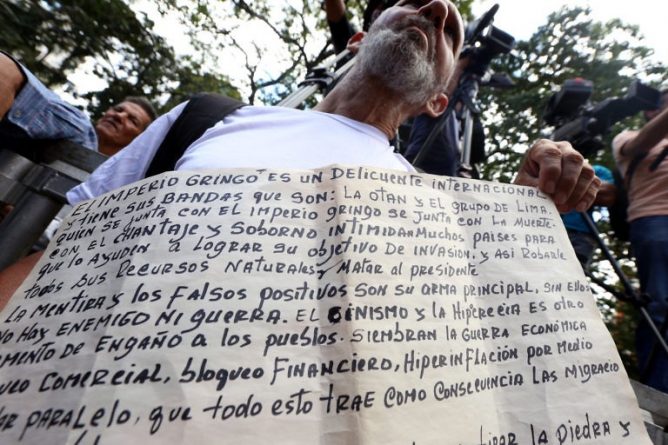 EL IMPERIO GRINGO ES UN DELICUENTE INTERNACIONAL
Y TIENE SUS BANDAS QUE SON: LA OTAN Y EL GRUPO DE LIMA.
QUIEN SE JUNTA CON EL IMPERIO GRINGO SE JUNTA CON LA MUERTE.
CON EL CHANTAJE Y SOBORNO INTIMIDAN MUCHOS PAISES PARA
QUE LO AYUDEN A LOGRAR SU OBJETIVO DE INVASION, Y ASI ROBARLE
TODOS SUS RECURSOS NATURALES, Y MATAR AL PRESIDENTE
LA MENTIRA Y LOS FALSOS POSITIVOS SON SU ARMA PRINCIPAL, SIN ELLOS
NO HAY ENEMIGO NI GUERRA. EL CINISMO Y LA HIPERECIA ES OTRO
MENTO DE ENGAÑO A LOS PUEBLOS. SIEMBRAN LA GUERRA ECONÓMICA
UEO COMERCIAL, BLOQUEO FINANCIERO, HIPERINFLACIÓN POR MEDIO
AR PARALELO, QUE TODO ESTO TRAE COMO CONSECUNCIA LAS MIGRACIO
LA PIEDRA Y